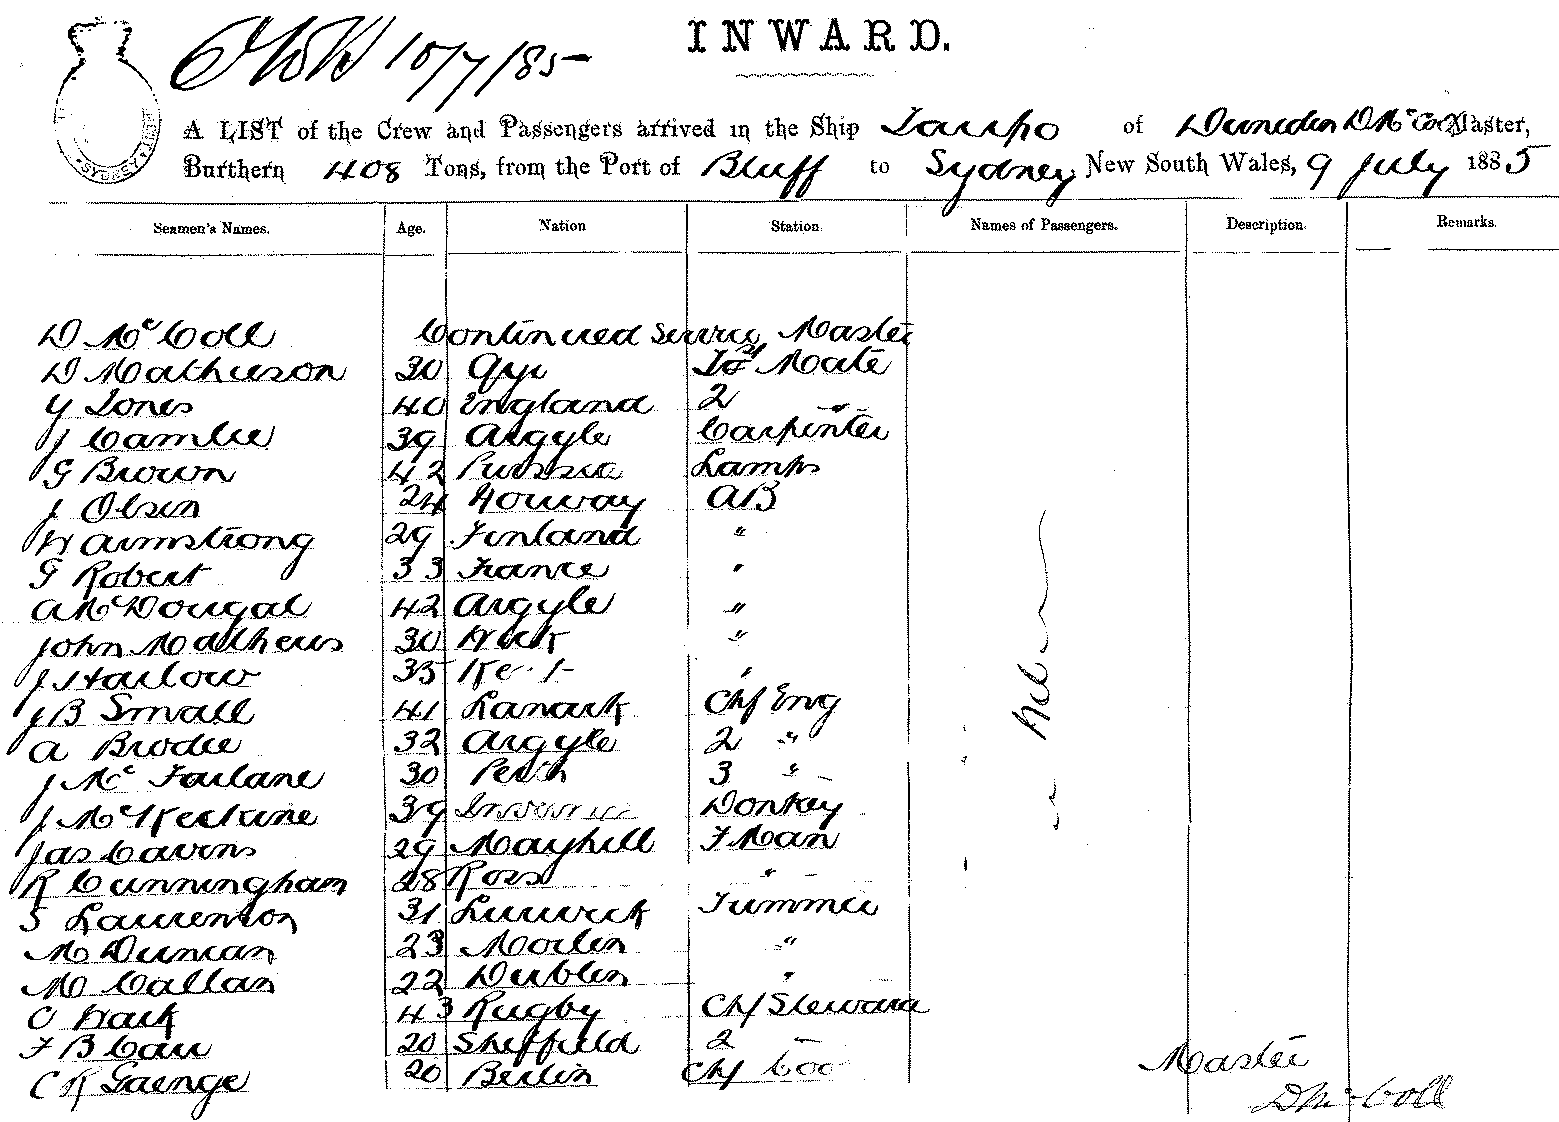 10/7/85
INWARD.
A LIST of the Crew and Passengers arrived in the Ship Taupo of Dunedin D McColl Master,
Burthern 408 Tons, from the Port of Bluff to Sydney New South Wales, 9 July 1885
Seamen's Names. Age. Nation Station. Names of Passengers. Description. Remarks.
D McColl Continued Service Master
D Mathieson 30 1st Mate
Y Jones 40 England 2 "
J 39 Argyle Carpenter
G Brown 42 Prussia Lamps
J Olsen 24 Norway AB
W Armstrong 29 Finland "
G Robert 33 France "
A McDougal 42 Argyle "
John Mathews 30 Wick "
J Harlow 35 "
J B Small 41 Lanark Chf Eng
A Brodie 32 Argyle 2 "
J McFarlane 30 Perth 3 "
J 39 Donkey
Jas Cavens 29 Mayhill F Man
R Cunningham 28 Ross "
S Laurenson 31 Lerwick Trimmer
M Duncan 23 "
M Callan 22 Dublin "
C Wark 43 Rugby Chf Steward
F B Carr 20 Sheffield 2 "
C R Gaenge 20 Berlin Chf Coo
Master
D McColl
SYDNEY